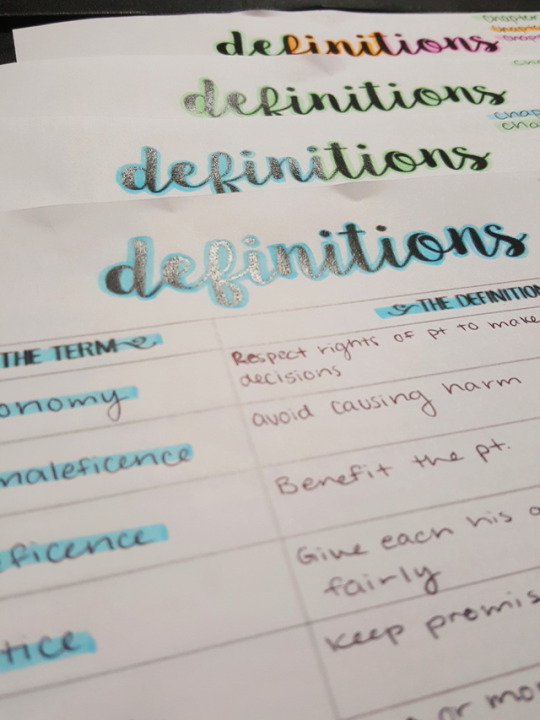 definitions
Chapter
Chapter
Chapter
definitions
definitions
definitions
THE TERM
THE DEFINITION
onomy
Respect rights of pt to make
decisions
maleficence
avoid causing harm
ficence
Benefit the pt.
tice
Give each his
fairly
keep promis
or mo